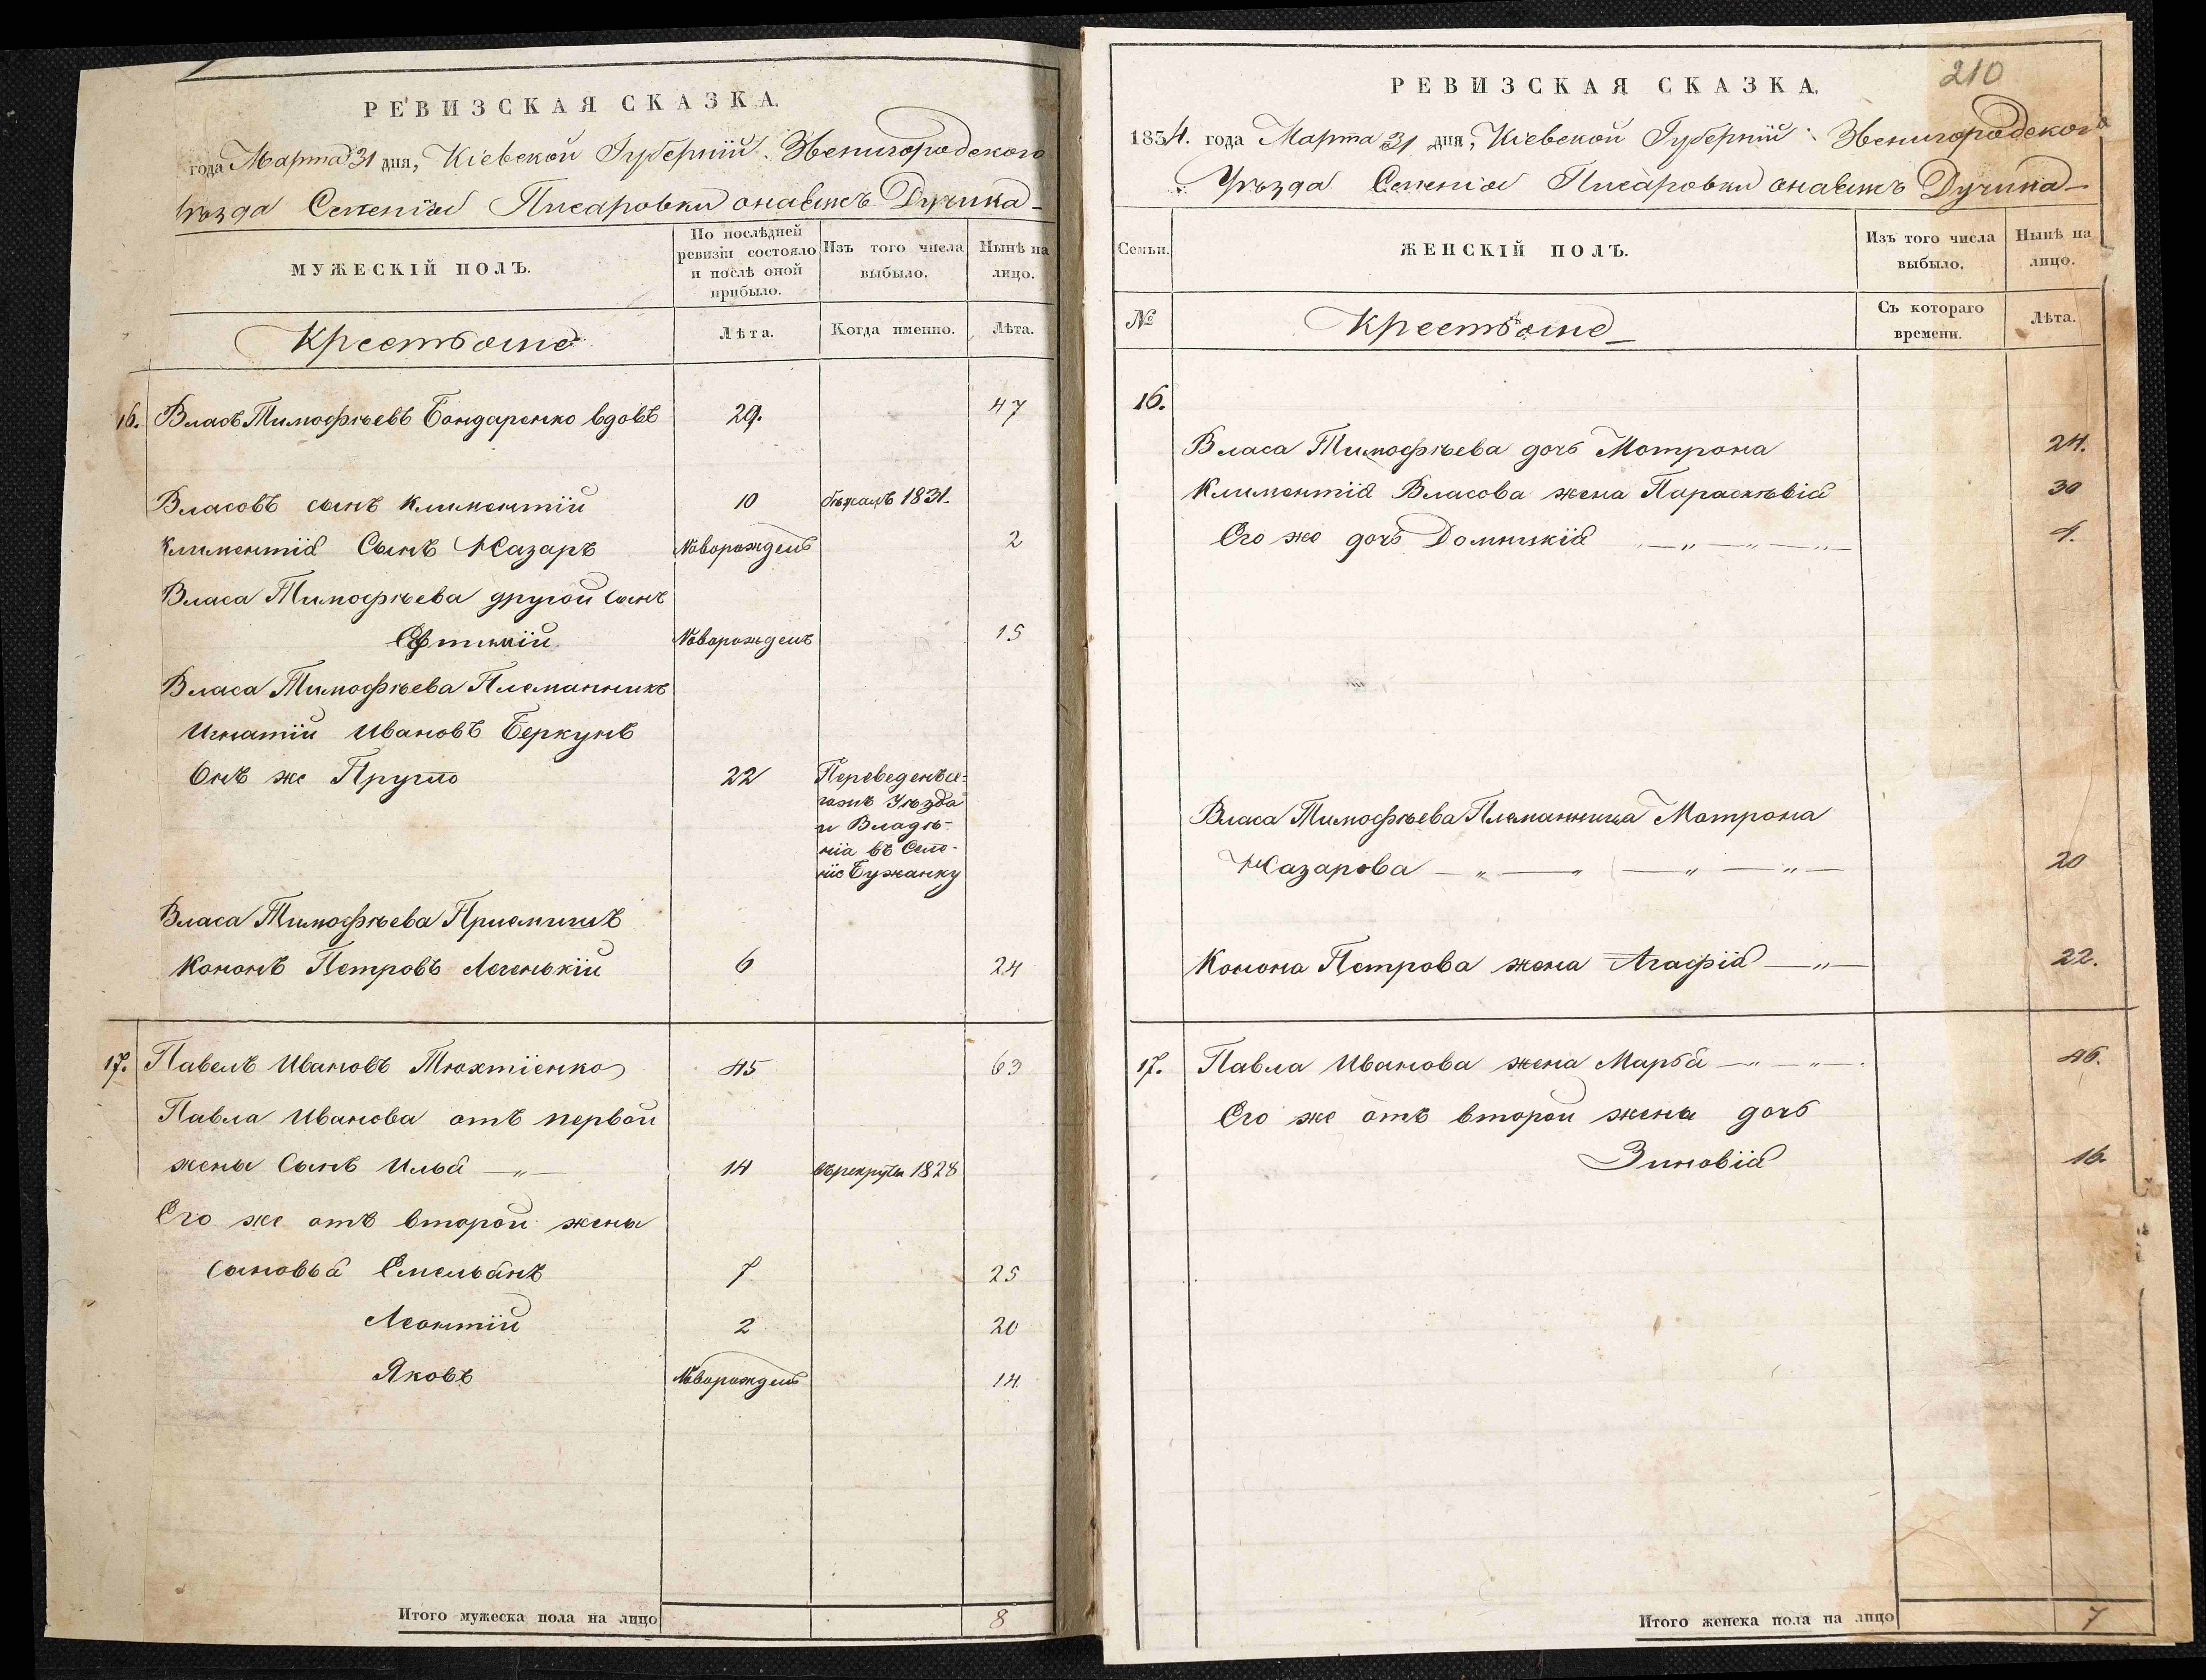 РЕВИЗСКАЯ СКАЗКА.
года Марта 31 дня, Кіевской Губерніи Звенигородского
Уѣзда Селенія Писаровки онаяжъ Дучина
МУЖЕСКІЙ ПОЛЪ.
По послѣдней ревизіи состояло и послѣ оной прибыло.
Изъ того числа выбыло.
Нынѣ на лицо.
Крестьяне
Лѣта.
Когда именно.
Лѣта.
16. Власъ Тимофѣевъ Бондаренко вдовъ 29. 47
Власовъ сынъ Климентій 10 бѣжалъ 1831.
Климентія Сынъ Назаръ Новорожденъ 2
Власа Тимофѣева другой сынъ
Ефтимій Новорожденъ 15
Власа Тимофѣева Племянникъ
Игнатій Ивановъ Беркунъ
Онъ же Пругло 22 Переведенъ се-
гожъ Уѣзда
и Владѣ-
нія въ Селе-
ніе Бужанку
Власа Тимофѣева Приемышъ
Кононъ Петровъ Легенькій 6 24
17. Павелъ Ивановъ Тюхтіенко 45 63
Павла Иванова отъ первой
жены Сынъ Илья — „ — 14 въ рекруты 1828
Его же отъ второй жены
сыновья Емельянъ 7 25
Леонтій 2 20
Яковъ Новорожденъ 14
Итого мужеска пола на лицо 8
210
РЕВИЗСКАЯ СКАЗКА.
1834. года Марта 31 дня, Кіевской Губерніи Звенигородского
Уѣзда Селенія Писаровки онаяжъ Дучина
Семьи.
ЖЕНСКІЙ ПОЛЪ.
Изъ того числа выбыло.
Нынѣ на лицо.
№
Крестьяне
Съ котораго времени.
Лѣта.
16.
Власа Тимофѣева дочь Мотрона 24.
Климентія Власова жена Параскѣвія 30
Его же дочь Домникія — „ — „ — „ — 4.
Власа Тимофѣева Племянница Мотрона
Назарова — „ — „ — „ — „ — 20
Конона Петрова жена Агафія — „ — 22.
17. Павла Иванова жена Марѳа — „ — „ — 46.
Его же отъ второй жены дочь
Зиновія 16
Итого женска пола на лицо 7